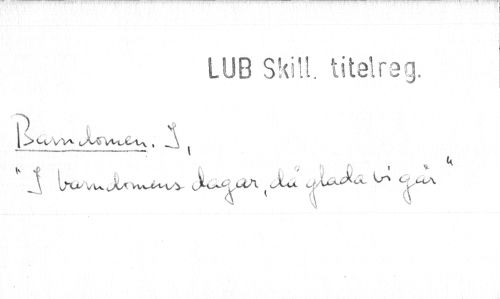 LUB Skill. titelreg.
Barndomen. I,
"I barndomens dagar, då glada vi går"